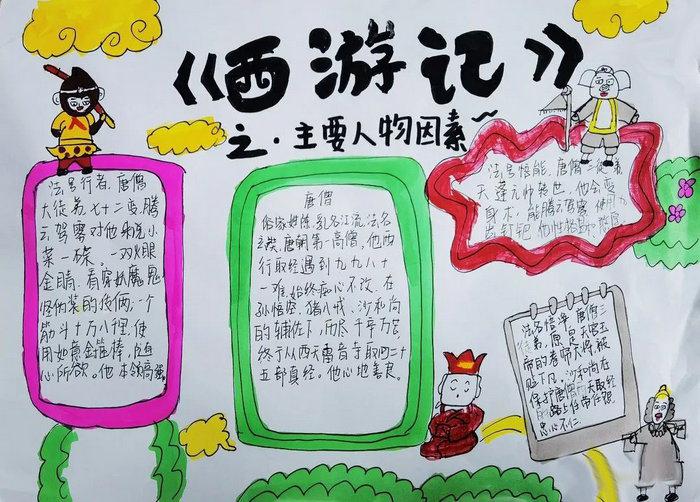 《西游记》
之·主要人物因素~
法号行者,唐僧
大徒弟七十二变,腾
云驾雾对他来说小
菜一碟。一双火眼
金睛,看穿妖魔鬼
怪伪装的伎俩;一个
筋斗十万八千里,使
用如意金箍棒,随
心所欲。他本领高强
唐僧
俗家姓陈,乳名江流,法名
玄奘,唐朝第一高僧,他西
行取经遇到九九八十
一难,始终痴心不改,在
孙悟空、猪八戒、沙和尚
的辅佐下,历尽千辛万苦,
终于从西天雷音寺取回三十
五部真经。他心地善良。
法号悟能,唐僧二徒弟
天蓬元帅转世,他会变
身术,能腾云驾雾,使用
钉钯
法名悟净,唐僧三
徒弟,原是天宫玉
帝的
贬下凡,沙和尚在
保护唐僧西天取经
的路上任劳任怨,
忠心不仁。